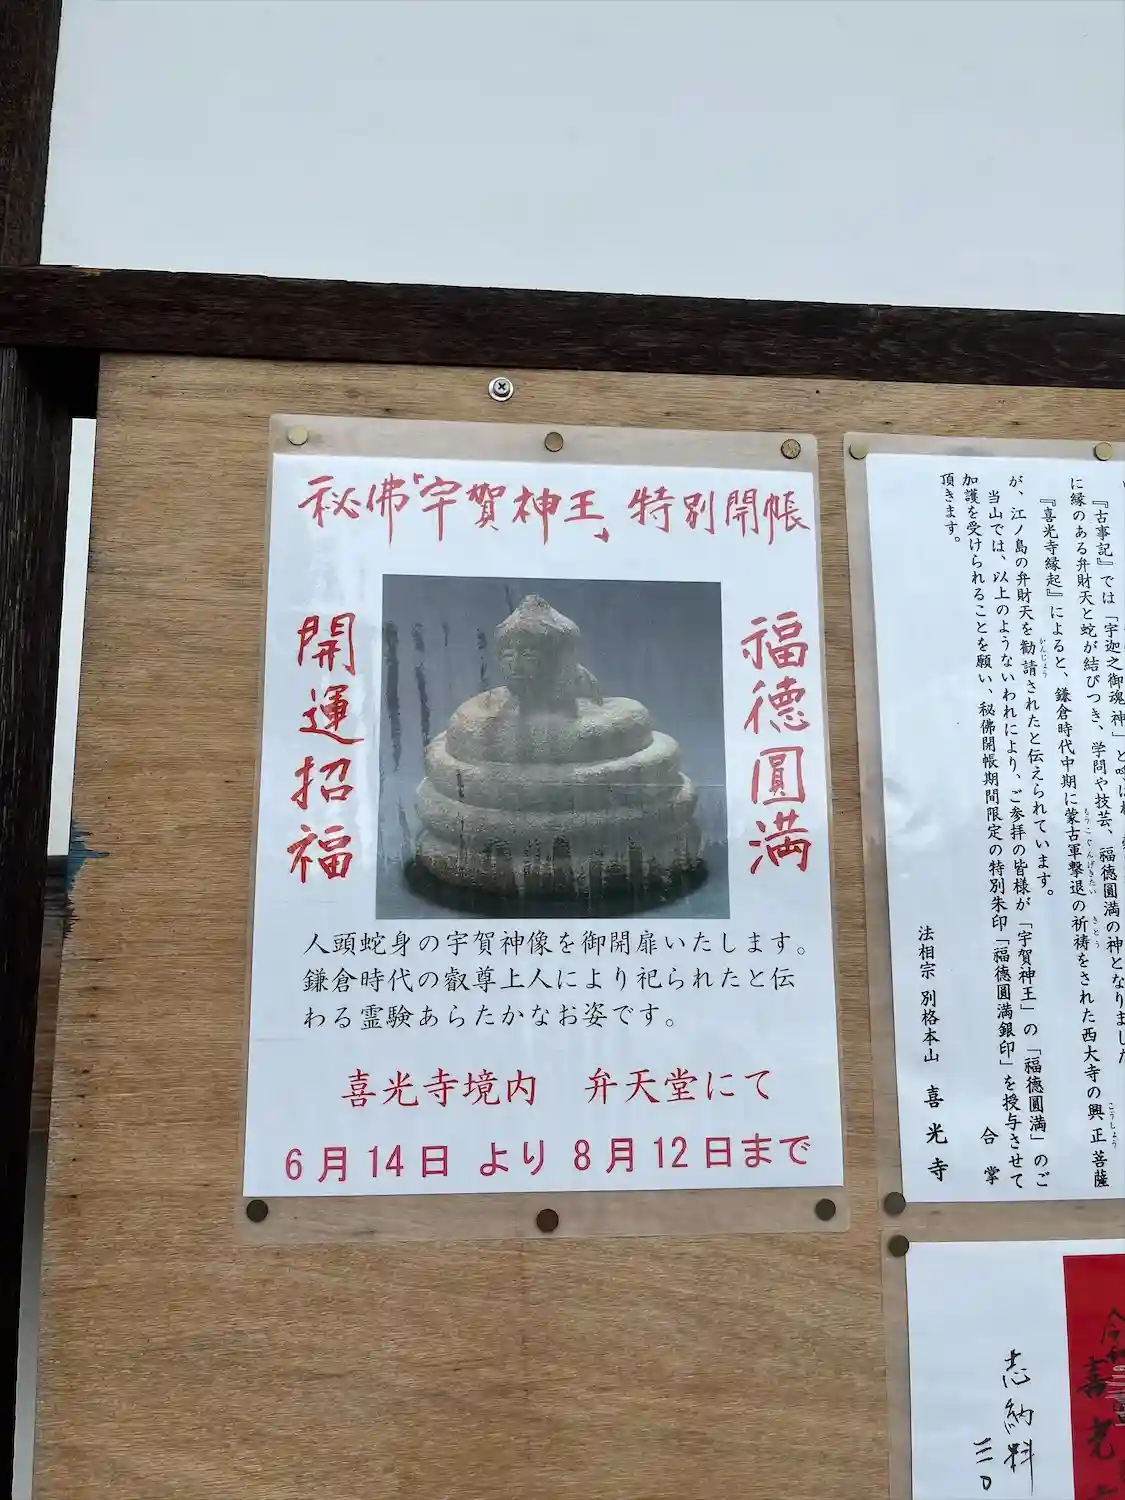 秘佛『宇賀神王』特別開帳
福徳圓満
開運招福
人頭蛇身の宇賀神像を御開扉いたします。
鎌倉時代の叡尊上人により祀られたと伝
わる霊験あらたかなお姿です。
喜光寺境内　弁天堂にて
6月14日 より 8月12日まで
『古事記』では「宇迦之御魂神」と
に縁のある弁財天と蛇が結びつき、学問や技芸、福徳圓満の神となりました
『喜光寺縁起』によると、鎌倉時代中期に蒙古軍撃退の祈祷をされた西大寺の興正菩薩
もうこぐんげきたい きとう こうしょう
が、江ノ島の弁財天を勧請されたと伝えられています。
かんじょう
当山では、以上のようないわれにより、ご参拝の皆様が「宇賀神王」の「福徳圓満」のご
加護を受けられることを願い、秘佛開帳期間限定の特別朱印「福徳圓満銀印」を授与させて
頂きます。
合掌
法相宗 別格本山 喜光寺
志納料
三〇
喜光